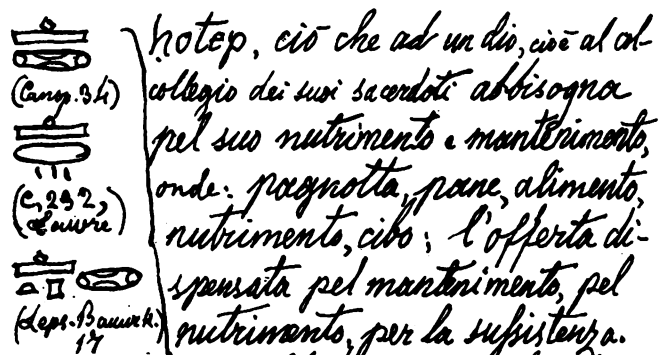 (Canop. 34)
(C, 292,
Louvre)
(Leps. Bauurk.
17
hotep, ciò che ad un dio, cioè al col-
collegio dei suoi sacerdoti abbisogna
pel suo nutrimento e mantenimento,
onde: pagnotta, pane, alimento,
nutrimento, cibo; l'offerta di-
spensata pel mantenimento, pel
nutrimento, per la sussistenza.